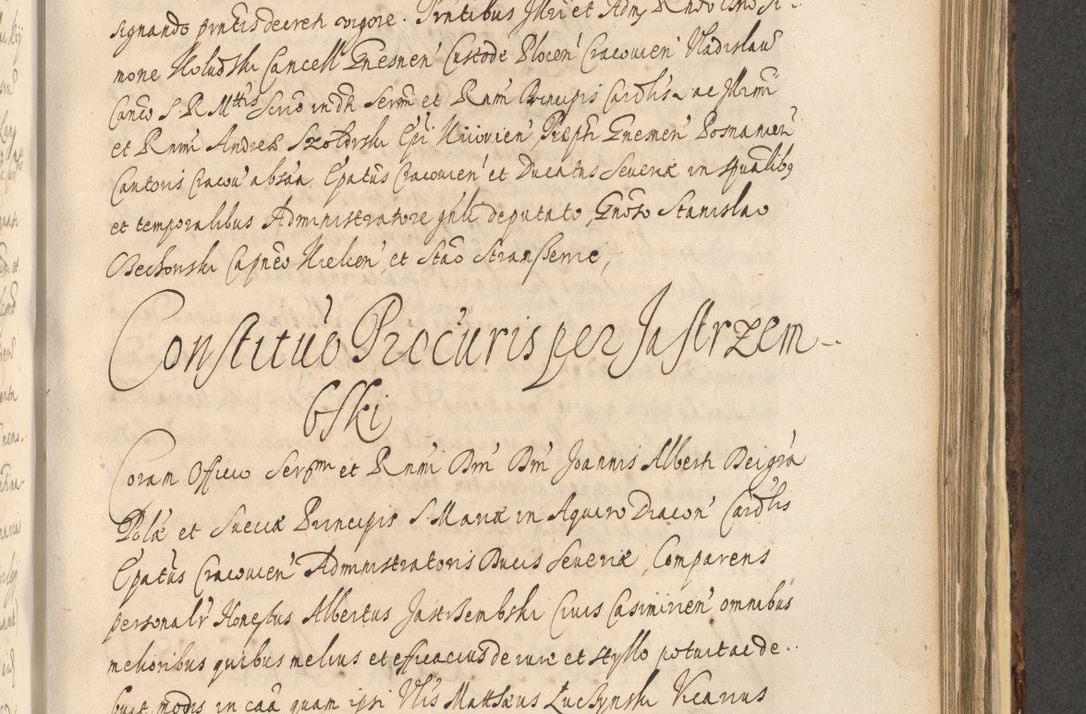 signando pntis decreti vigore. Pntibus Jllri et Adm Rndo Dno Si-
mone Kołudski Cancell Gnesnen' Custode Plocen' Cracovien' Vladislau
Canco S. R. Mttis Scrio in dh Serm et Rnmi Principis Cardlis ac Jllrmi
et Rnmi Andreæ Szołdrski Epi Kiiovien' Præpti Gnesnen' Posnanien'
Cantoris Cracou' absñã, Epatus Cracovien' et Ducatus Severiæ in spualibq
et temporalibus Administratore gñli deputato, Gnoso Stanislao
Bechonski Capneo Kielcen', et Stão Stranszewic,
Constituo Procuris per Jastrzem-
bski
Coram Officio Sermi et Rnmi Dni Dni Joannis Alberti Dei grã
Polæ et Sueciæ Principis S. Mariæ in Aquiro Diacon' Cardlis
Epatus Cracovien' Administratoris Ducis Severiæ, Comparens
personalr Honestus Albertus Jastrzembski Civis Casimirien' omnibus
melioribus quibus melius et efficacius de iure et styllo potuit ac de-
buit modis in caã quam ipsi Vlis Matthæus Łuczynski Vicarius